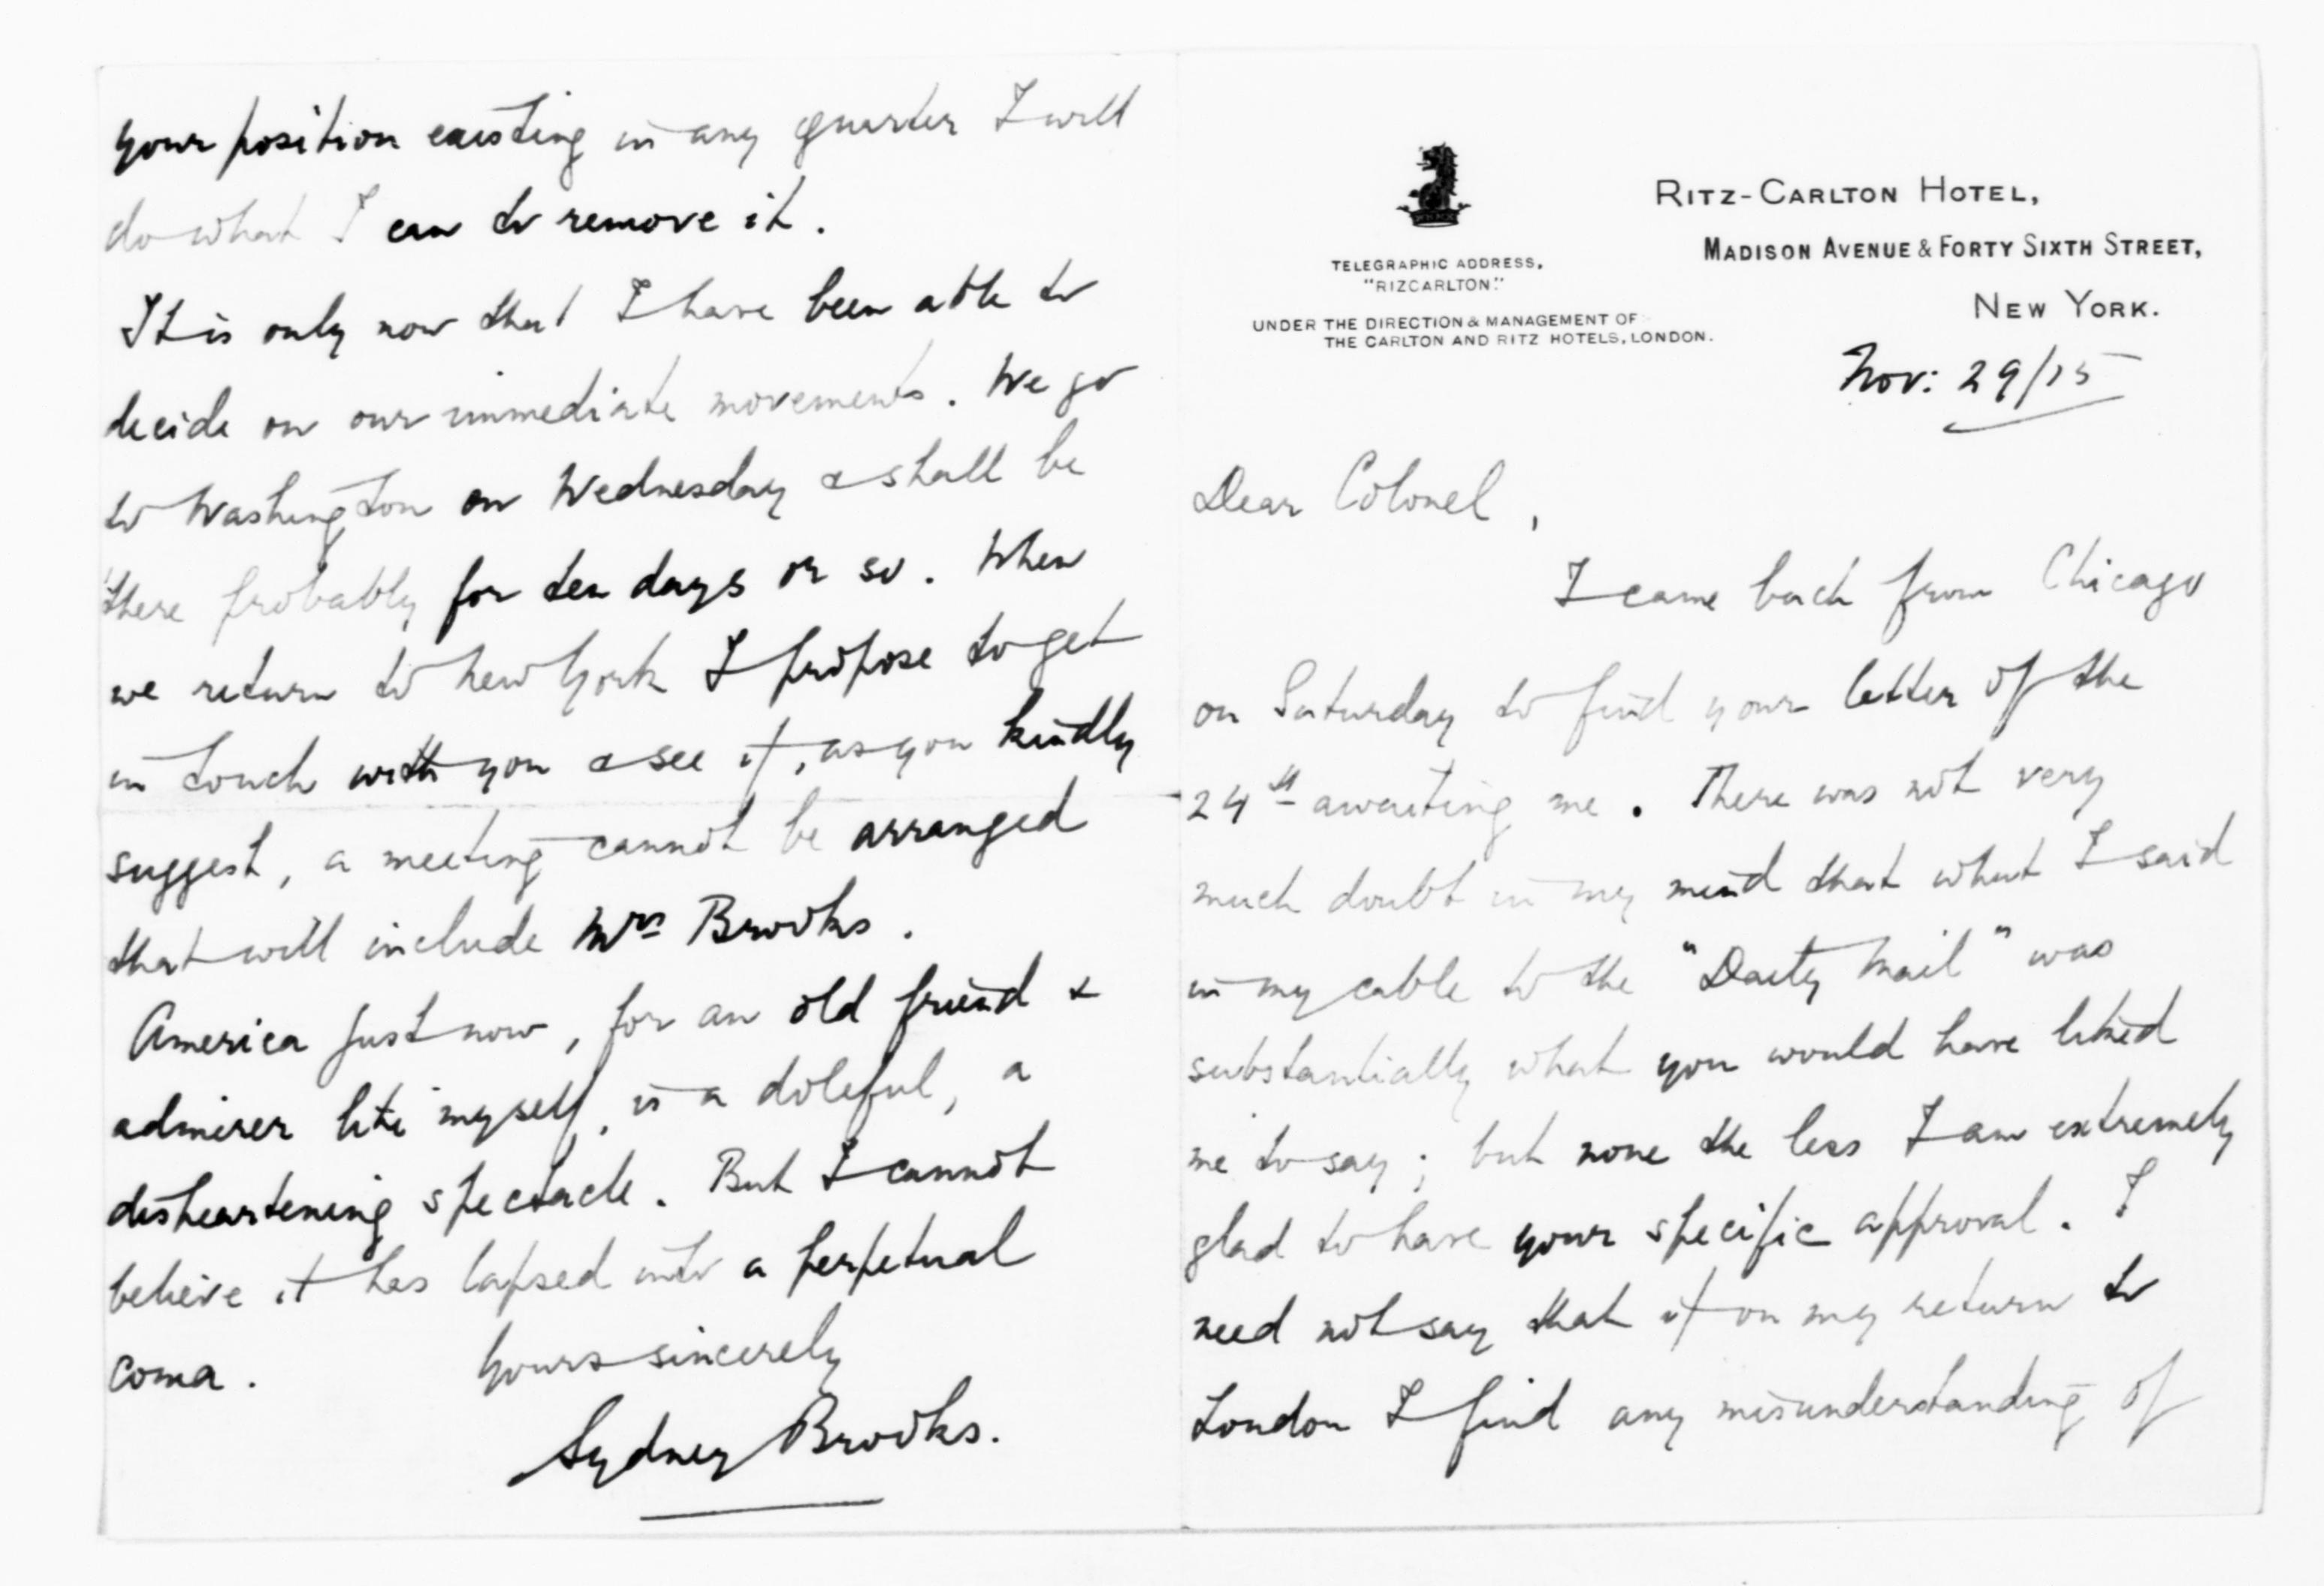 TELEGRAPHIC ADDRESS,
"RIZCARLTON."
UNDER THE DIRECTION & MANAGEMENT OF
THE CARLTON AND RITZ HOTELS, LONDON.
RITZ-CARLTON HOTEL,
MADISON AVENUE & FORTY SIXTH STREET,
NEW YORK.
Nov: 29/15
Dear Colonel,
I came back from Chicago
on Saturday to find your letter of the
24th awaiting me. There was not very
much doubt in my mind that what I said
in my cable to the "Daily Mail" was
substantially what you would have liked
me to say; but none the less I am extremely
glad to have your specific approval. I
need not say that if on my return to
London I find any misunderstanding of
your position existing in any quarter I will
do what I can to remove it.
It is only now that I have been able to
decide on our immediate movements. We go
to Washington on Wednesday & shall be
there probably for ten days or so. When
we return to New York I propose to get
in touch with you & see if, as you kindly
suggest, a meeting cannot be arranged
that will include Mrs Brooks.
America just now, for an old friend &
admirer like myself, is a doleful, a
disheartening spectacle. But I cannot
believe it has lapsed into a perpetual
coma.
Yours sincerely
Sydney Brooks.